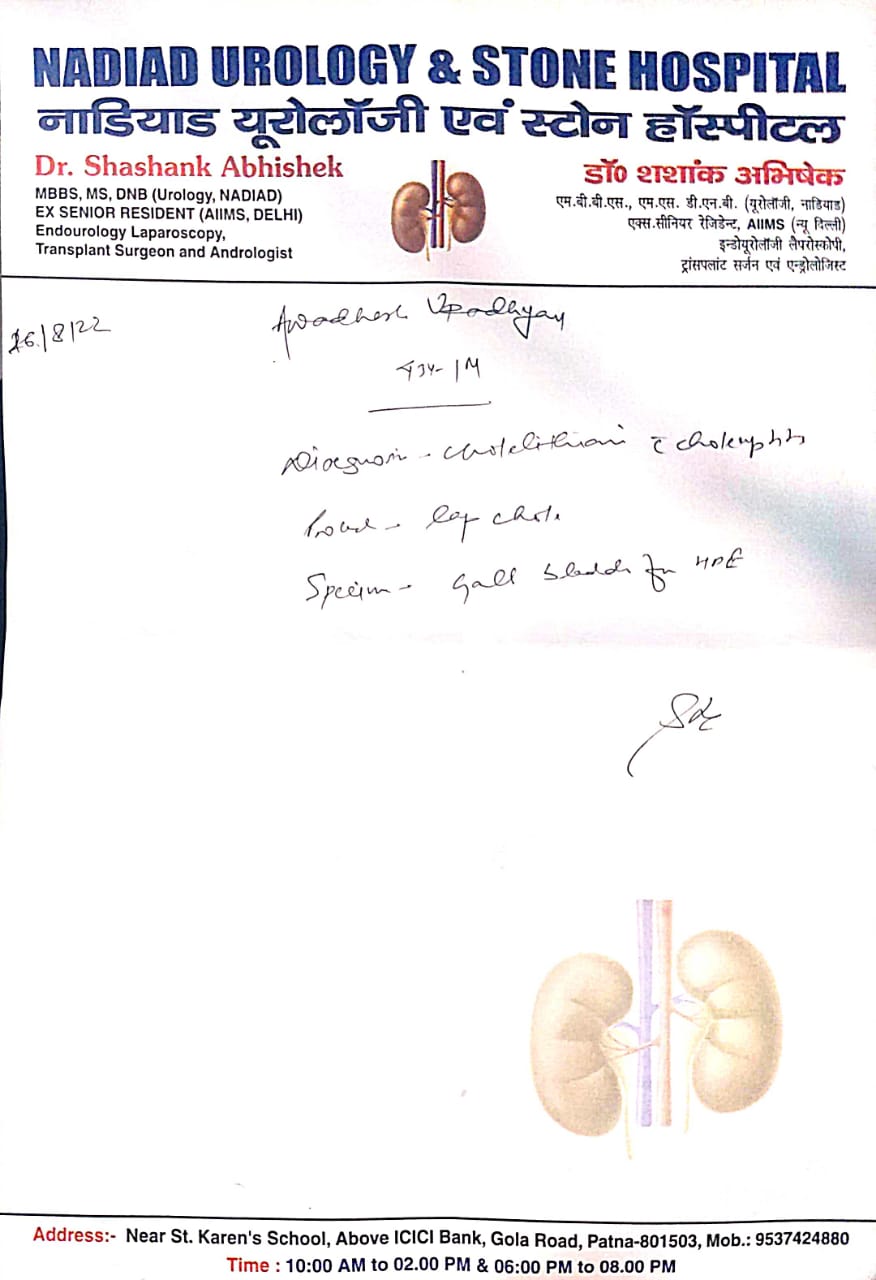 NADIAD UROLOGY & STONE HOSPITAL
नाडियाड यूरोलॉजी एवं स्टोन हॉस्पीटल
Dr. Shashank Abhishek
MBBS, MS, DNB (Urology, NADIAD)
EX SENIOR RESIDENT (AIIMS, DELHI)
Endourology Laparoscopy,
Transplant Surgeon and Andrologist
डॉ० शशांक अभिषेक
एम.बी.बी.एस., एम.एस. डी.एन.बी. (यूरोलॉजी, नाडियाड)
एक्स.सीनियर रेजिडेन्ट, AIIMS (न्यू दिल्ली)
इन्डोयूरोलॉजी लैपरोस्कोपी,
ट्रांसप्लांट सर्जन एवं एन्ड्रोलोजिस्ट
26/8/22
Awadhesh Upadhyay
Diagnosis - cholelithiasis
lap chole
Specimen - Gall bladder for HPE
Address:- Near St. Karen's School, Above ICICI Bank, Gola Road, Patna-801503, Mob.: 9537424880
Time : 10:00 AM to 02.00 PM & 06:00 PM to 08.00 PM